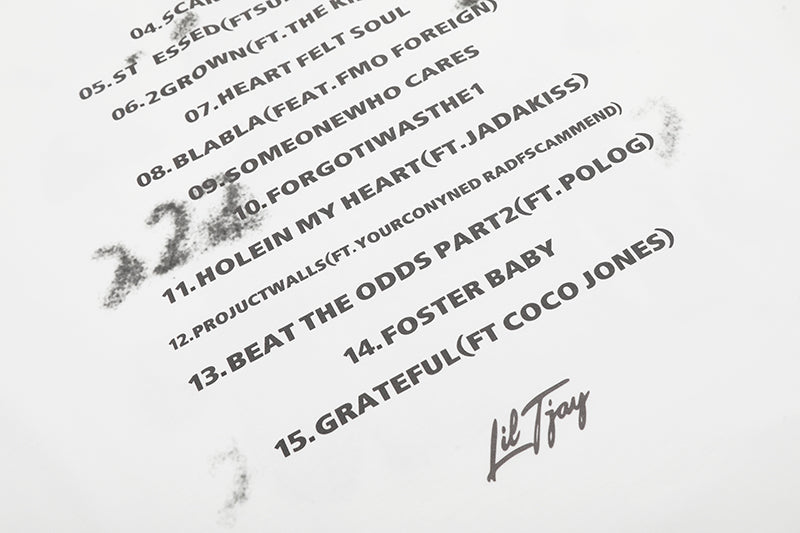 04.SCAR
05.ST ESSED(FTSU
06.2GROWN(FT.THE KI
07.HEART FELT SOUL
08.BLABLA(FEAT.FMO FOREIGN)
09.SOMEONEWHO CARES
10.FORGOTIWASTHE1
11.HOLEIN MY HEART(FT.JADAKISS)
12.PROJUCTWALLS(FT.YOURCONYNED RADFSCAMMEND)
13.BEAT THE ODDS PART2(FT.POLOG)
14.FOSTER BABY
15.GRATEFUL(FT COCO JONES)
Lil Tjay